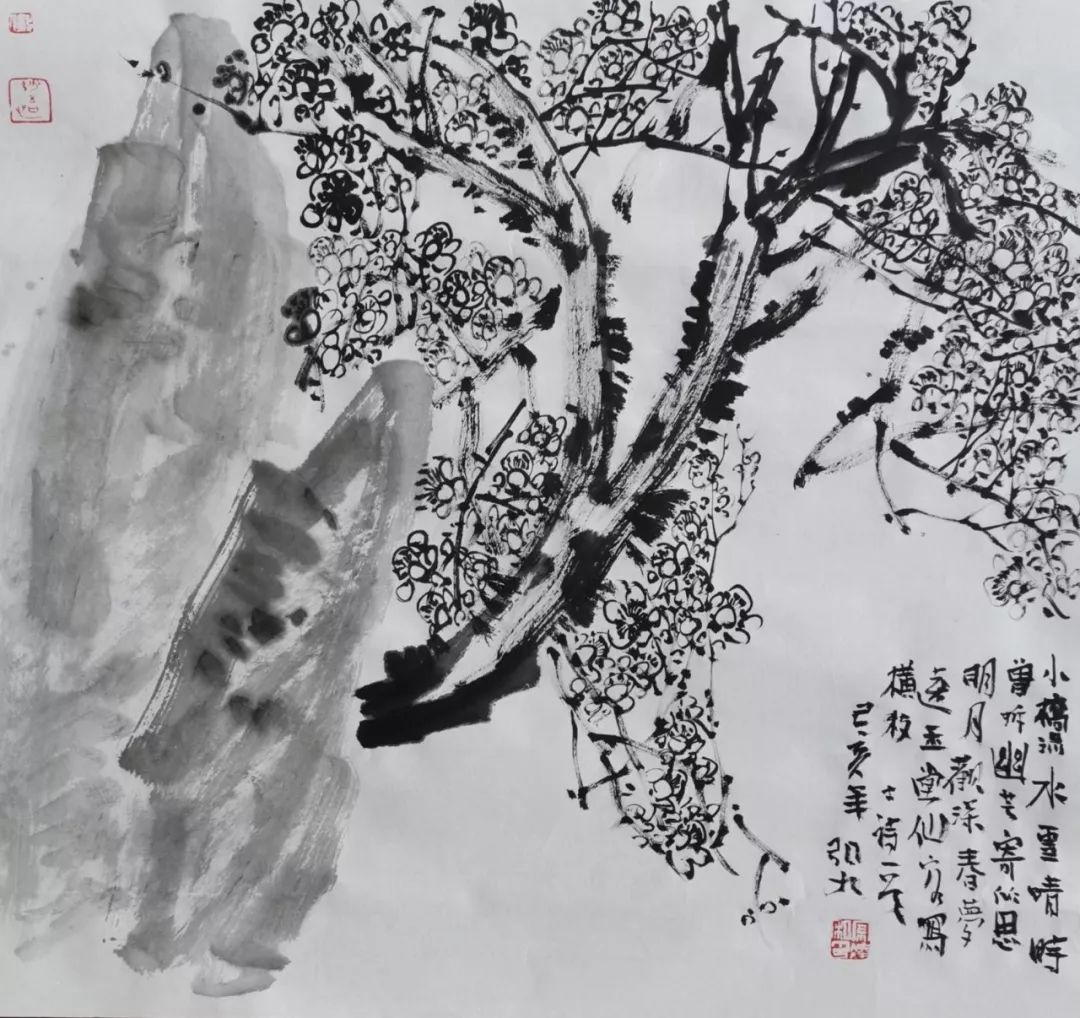 小橋流水雪晴時
曾折幽芳寄所思
明月觀深春夢
遠玉堂仙客寫
橫枝 古詩一首
己亥年